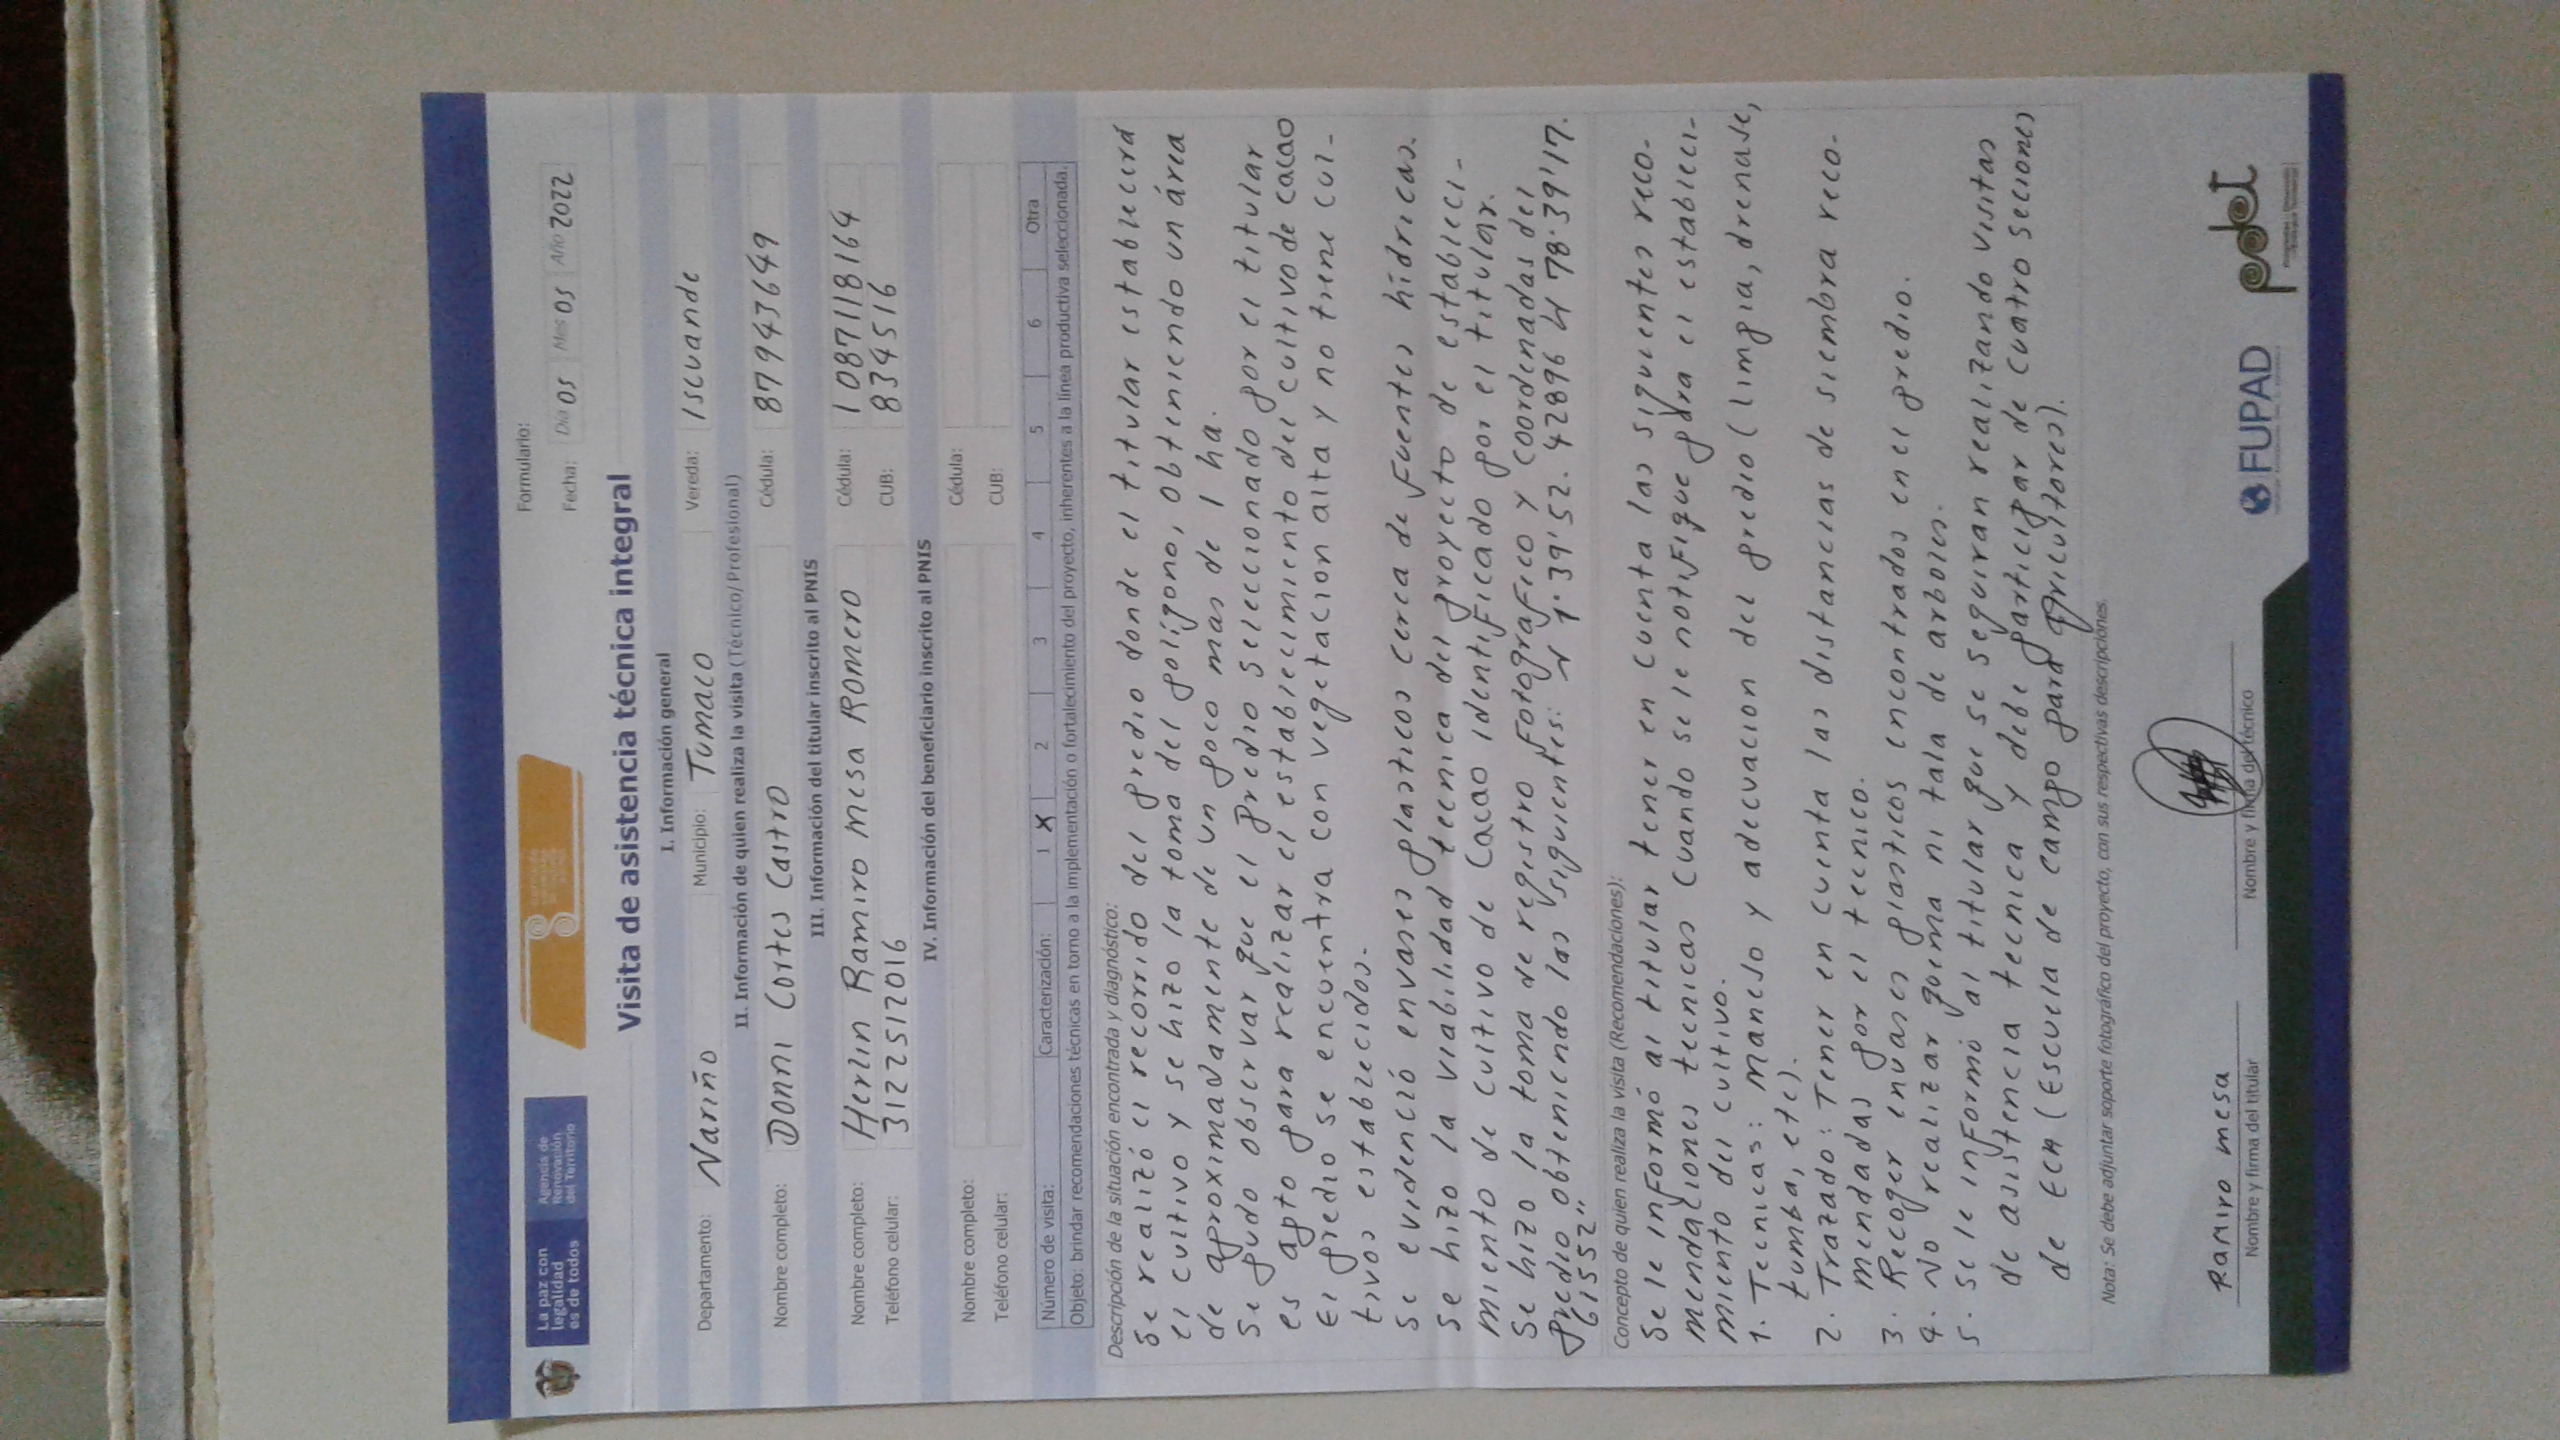 La paz con
legalidad
es de todos
Agencia de
Renovación
del Territorio
Formulario:
Fecha: Día 05 Mes 05 Año 2022
Visita de asistencia técnica integral
I. Información general
Departamento: Nariño Municipio: Tumaco Vereda: Iscuande
II. Información de quien realiza la visita (Técnico/Profesional)
Nombre completo: Donni Cortes Castro Cédula: 87943649
III. Información del titular inscrito al PNIS
Nombre completo: Herlin Ramiro mesa Romero Cédula: 1087118164
Teléfono celular: 3122512016 CUB: 834516
IV. Información del beneficiario inscrito al PNIS
Nombre completo: Cédula:
Teléfono celular: CUB:
Número de visita: Caracterización: 1 X 2 3 4 5 6 Otra
Objeto: brindar recomendaciones técnicas en torno a la implementación o fortalecimiento del proyecto, inherentes a la línea productiva seleccionada.
Descripción de la situación encontrada y diagnóstico:
Se realizó el recorrido del predio donde el titular establecerá
el cultivo y se hizo la toma del polígono, obteniendo un área
de aproximadamente de un poco mas de 1 ha.
Se pudo observar que el predio seleccionado por el titular
es apto para realizar el establecimiento del cultivo de cacao
El predio se encuentra con vegetacion alta y no tiene cul-
tivos establecidos.
Se evidenció envases plasticos cerca de fuentes hídricas.
Se hizo la viabilidad tecnica del proyecto de estableci-
miento de cultivo de Cacao identificado por el titular.
Se hizo la toma de registro fotografico y coordenadas del
predio obteniendo las siguientes: N 1°39'52.42896 W 78°39'17.
61552"
Concepto de quien realiza la visita (Recomendaciones):
Se le informó al titular tener en cuenta las siguientes reco-
mendaciones tecnicas cuando se le notifique para el estableci-
miento del cultivo.
1. Tecnicas: manejo y adecuacion del predio (limpia, drenase,
tumba, etc).
2. Trazado: Tener en cuenta las distancias de siembra reco-
mendadas por el tecnico.
3. Recoger envases plasticos encontrados en el predio.
4. No realizar quema ni tala de arboles.
5. Se le informó al titular que se seguiran realizando visitas
de asistencia tecnica y debe participar de cuatro seciones
de ECA (Escuela de campo para agricultores).
Nota: Se debe adjuntar soporte fotográfico del proyecto, con sus respectivas descripciones.
Ramiro mesa
Nombre y firma del titular Nombre y firma del técnico
FUPAD
pdet